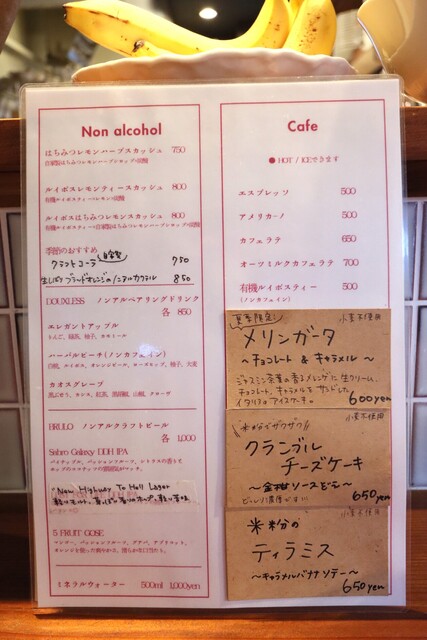 Non alcohol
はちみつレモンハーブスカッシュ 750
自家製はちみつレモンハーブシロップ+炭酸
ルイボスレモンティースカッシュ 800
有機ルイボスティー+レモン+炭酸
ルイボスはちみつレモンスカッシュ 800
季節のおすすめ
クラフトコーラ 自家製 750
生しぼりブラッドオレンジのノンアルカクテル 850
DOUXLESS ノンアルペアリングドリンク
各 850
エレガントアップル
ハーバルピーチ(ノンカフェイン)
カオスグレープ
BRULO ノンアルクラフトビール
各 1,000
Sabro Galaxy DDH IPA
パイナップル、パッションフルーツ、シトラスの香りと
ホップのスッキリした
New Highway To Hell Lager
5 FRUIT GOSE
マンゴー、パッションフルーツ、グアバ、アプリコット、
オレンジを使った爽やかさ、滑らかな口当たり。
ミネラルウォーター 500ml 1,000yen
Cafe
● HOT / ICEできます
エスプレッソ 500
アメリカーノ 500
カフェラテ 650
オーツミルクカフェラテ 700
有機ルイボスティー 500
(ノンカフェイン)
夏季限定!
小麦不使用
メリンガータ
~チョコレート & キャラメル~
ジャスミン茶葉の香るメレンゲに生クリーム、
チョコレート、キャラメルをサンドした
イタリアのアイスケーキ。
600yen
米粉でザクザク
小麦不使用
クランブル
チーズケーキ
~金柑ソースと~
650yen
小麦不使用
米粉の
ティラミス
~キャラメルバナナソテー~
650yen